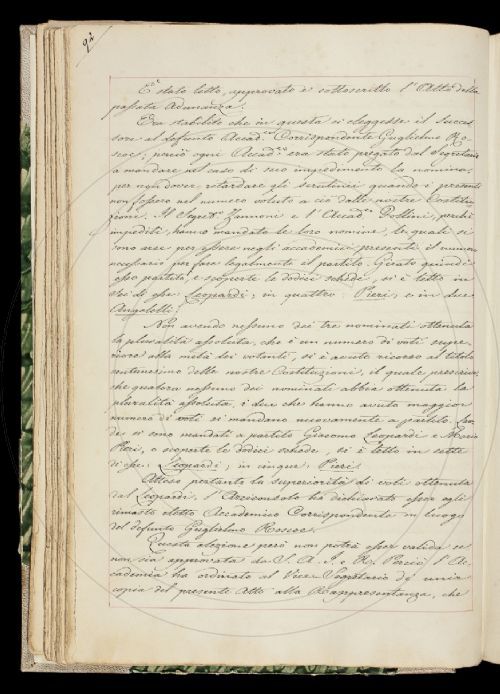 92
È stato letto, approvato e sottoscritto l'Atto della
passata Adunanza.
Era stabilito che in questa si eleggesse il succes-
sore al defunto Accad.co Corrispondente Guglielmo Ro-
scoe; perciò ogni Accad.co era stato pregato dal Segretario
a mandare nel caso di suo impedimento la nomina,
per non dover retardare gli scrutinii quando i presenti
non fossero nel numero voluto a ciò dalle nostre Costitu-
zioni. Il Segret.o Zannoni e l'Accad.co Pollini, perchè
impediti, hanno mandate le loro nomine, le quali si
sono per essere negli accademici presenti il numero
necessario per fare legalmente il partito. Girato quindi
esso partito, e scoperte le dodici schede, si è letto in
sei di esse Leopardi, in quattro Pieri, e in due
Angelotti.
Non avendo nessuno dei tre nominati ottenuta
la pluralità assoluta, che è un numero di voti supe-
riore alla metà dei votanti, si è avuto ricorso al titolo
delle nostre Costituzioni, il quale prescrive,
che qualora nessuno dei nominati abbia ottenuta la
pluralità assoluta, i due che hanno avuto maggior
numero di voti si mandano nuovamente a partito. On-
de si sono mandati a partito Giacomo Leopardi e Mario
Pieri, e scoperte le dodici schede si è letto in sette
di esse: Leopardi, in cinque: Pieri.
Attesa pertanto la superiorità di voti ottenuta
dal Leopardi, l'Arciconsolo ha dichiarato essere egli
rimasto eletto Accademico Corrispondente in luogo
del defunto Guglielmo Roscoe.
Questa elezione però non potrà esser valida se
non sia approvata da S. A. I. e R. Perciò l'Ac-
cademia ha ordinato al Vice-Segretario di
copia del presente Atto alla Rappresentanza, che